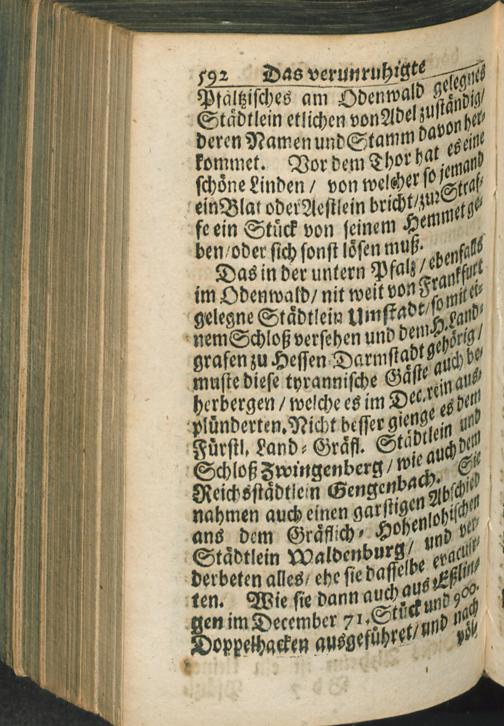 592 Das verunruhigte
Pfältzisches am Odenwald gelegnes
Städtlein etlichen von Adel zuständig/
deren Namen und Stamm davon her-
kommet. Vor dem Thor hat es eine
schöne Linden / von welcher so jemand
ein Blat oder Aestlein bricht/zur Straf-
fe ein Stück von seinem Hemmet ge-
ben/oder sich sonst lösen muß.
Das in der untern Pfalz / ebenfalls
im Odenwald/ nit weit von Franckfurt
gelegne Städtlein Umstadt/so mit ei-
nem Schloß versehen und dem H. Land-
grafen zu Hessen-Darmstadt gehörig/
muste diese tyrannische Gäste auch be-
herbergen / welche es im Dec. rein aus-
plünderten. Nicht besser gienge es dem
Fürstl. Land-Gräfl. Städtlein und
Schloß Zwingenberg / wie auch dem
Reichsstädtlein Gengenbach. Sie
nahmen auch einen garstigen Abschied
ans dem Gräflich-Hohenlohischen
Städtlein Waldenburg/ und ver-
derbeten alles/ ehe sie dasselbe evacuir-
ten. Wie sie dann auch aus Eßlin-
gen im December 71. Stück und 900.
Doppelhacken ausgeführet/und nach
völ-